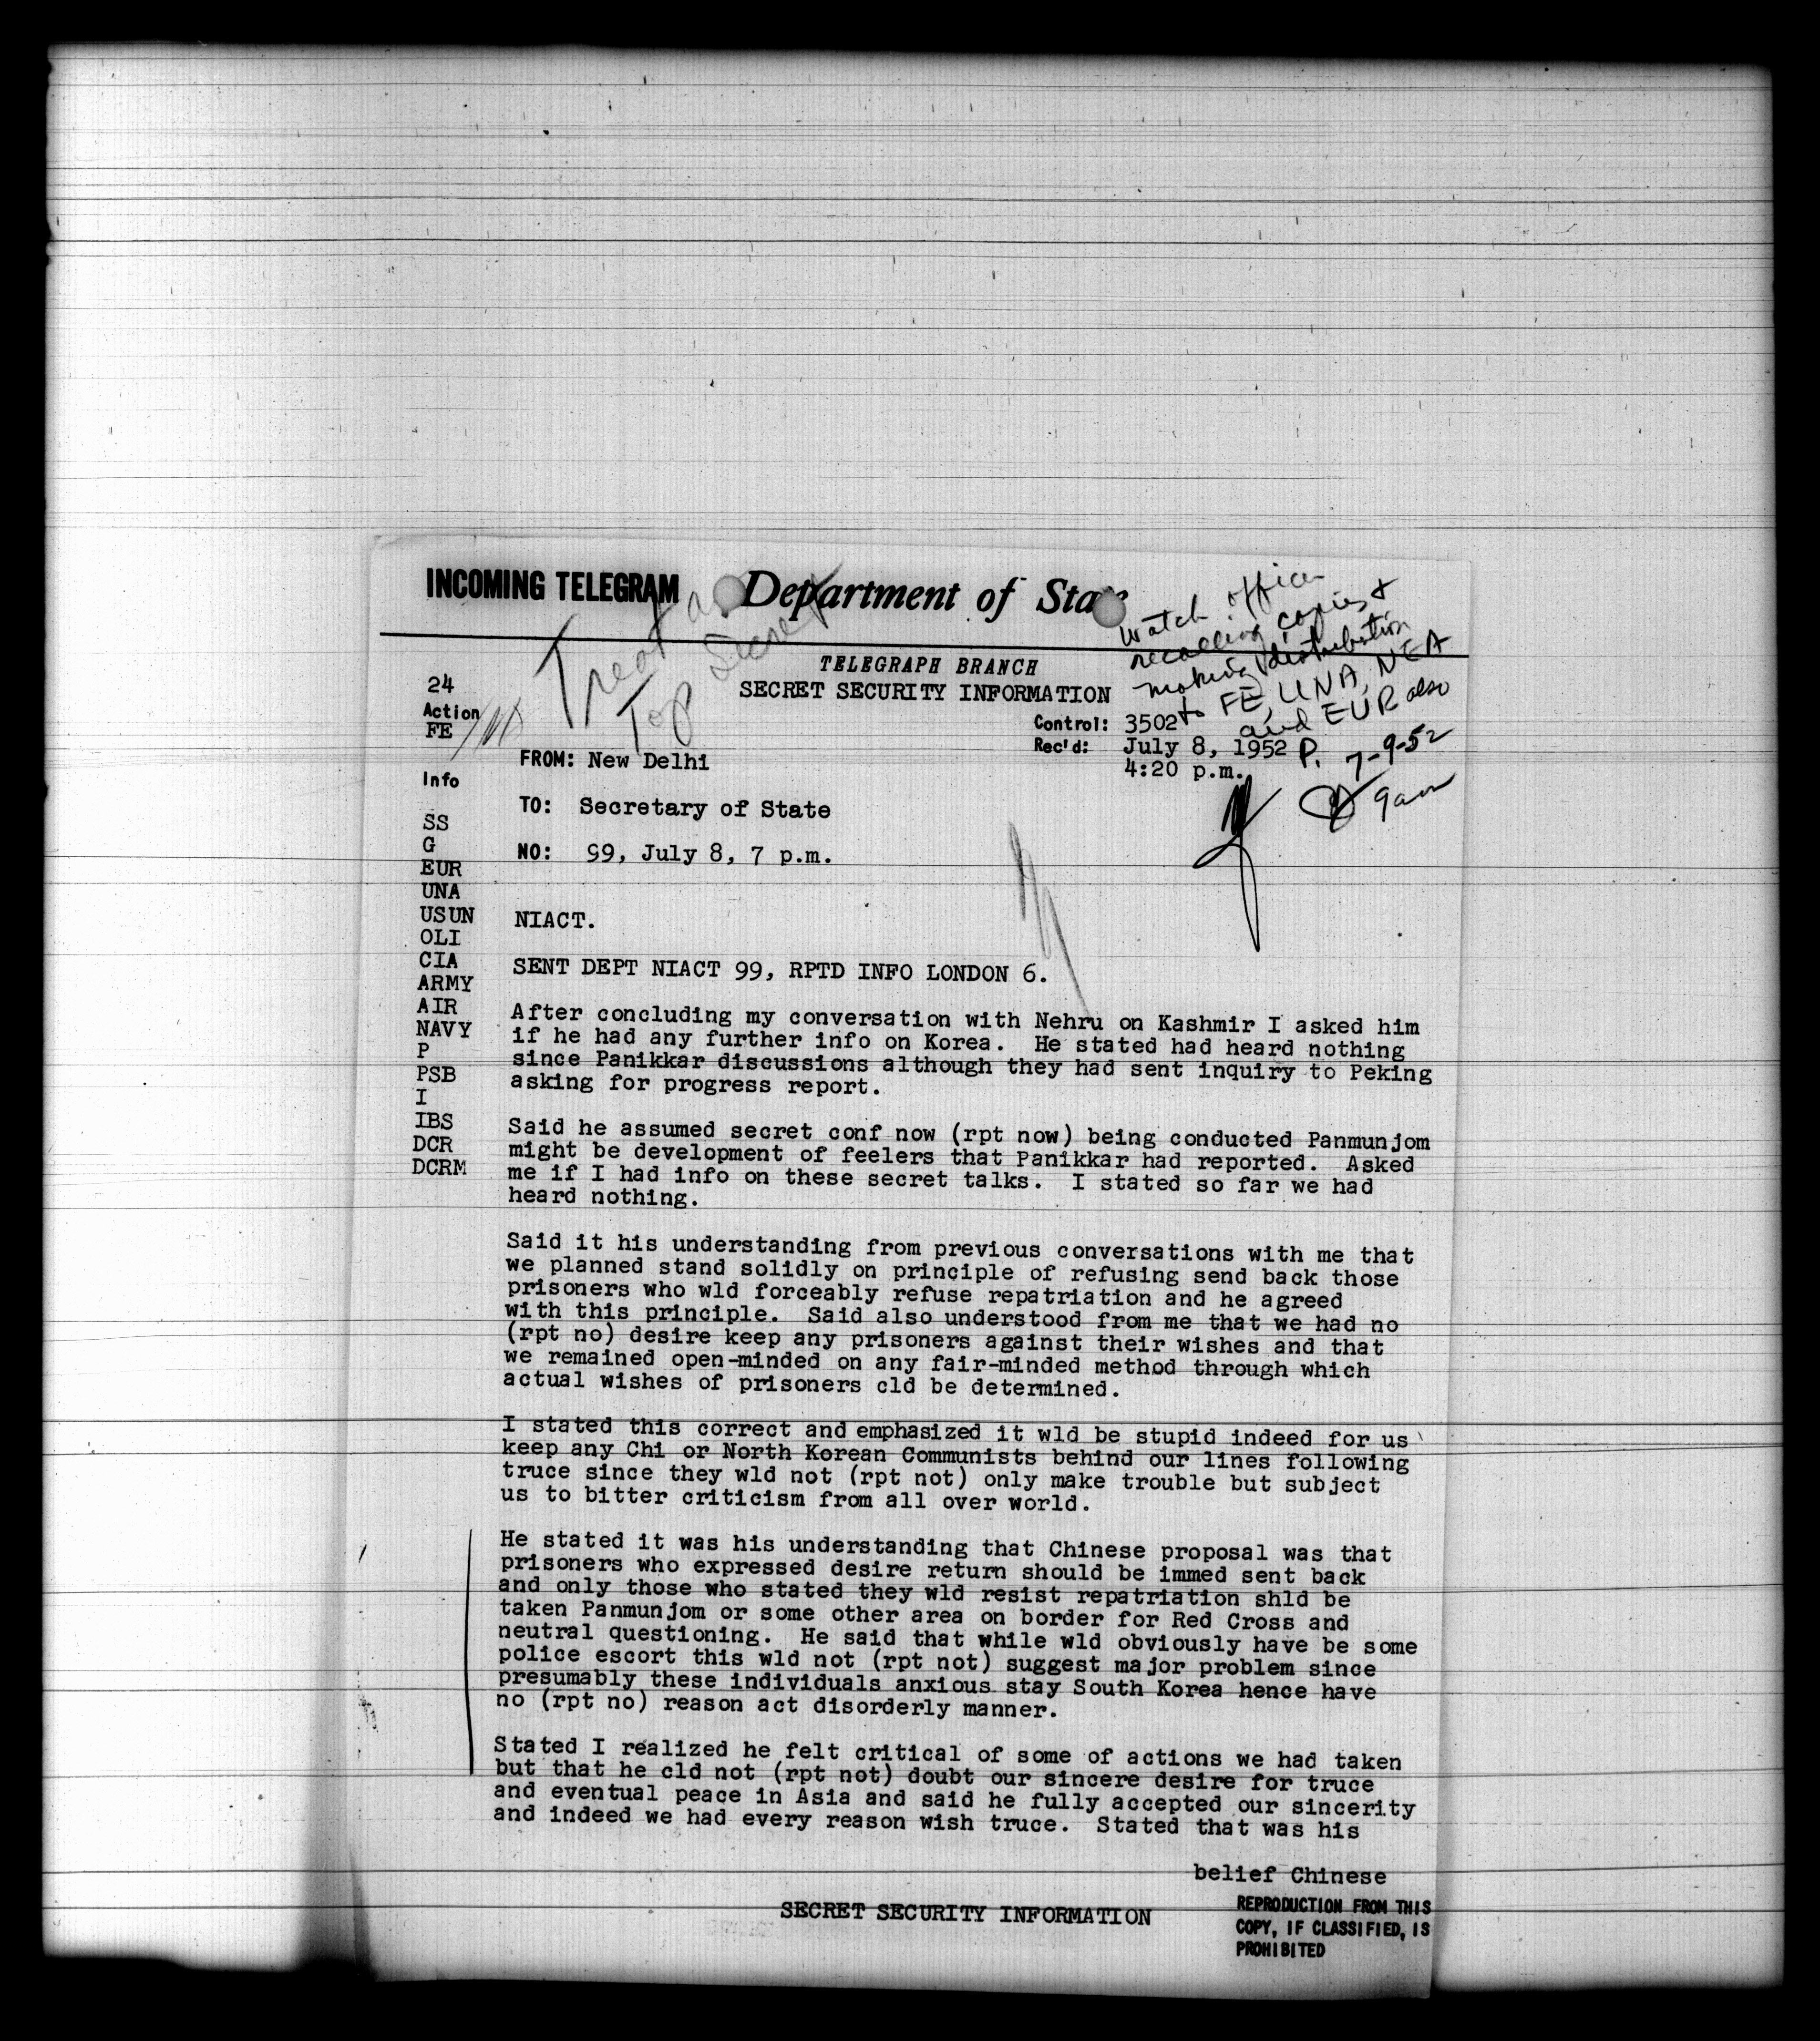 INCOMING TELEGRAM Department of State
Treat as
Top Secret
Watch officer
recalling copies &
making distribution
to FE, UNA, NEA
and EUR also
P. 7-9-52
9am
TELEGRAPH BRANCH
SECRET SECURITY INFORMATION
24
Action
FE
Control: 3502
Rec'd: July 8, 1952
4:20 p.m.
FROM: New Delhi
Info
TO: Secretary of State
SS
G
NO: 99, July 8, 7 p.m.
EUR
UNA
USUN
OLI
CIA
ARMY
AIR
NAVY
P
PSB
I
IBS
DCR
DCRM
NIACT.
SENT DEPT NIACT 99, RPTD INFO LONDON 6.
After concluding my conversation with Nehru on Kashmir I asked him
if he had any further info on Korea. He stated had heard nothing
since Panikkar discussions although they had sent inquiry to Peking
asking for progress report.
Said he assumed secret conf now (rpt now) being conducted Panmunjom
might be development of feelers that Panikkar had reported. Asked
me if I had info on these secret talks. I stated so far we had
heard nothing.
Said it his understanding from previous conversations with me that
we planned stand solidly on principle of refusing send back those
prisoners who wld forceably refuse repatriation and he agreed
with this principle. Said also understood from me that we had no
(rpt no) desire keep any prisoners against their wishes and that
we remained open-minded on any fair-minded method through which
actual wishes of prisoners cld be determined.
I stated this correct and emphasized it wld be stupid indeed for us
keep any Chi or North Korean Communists behind our lines following
truce since they wld not (rpt not) only make trouble but subject
us to bitter criticism from all over world.
He stated it was his understanding that Chinese proposal was that
prisoners who expressed desire return should be immed sent back
and only those who stated they wld resist repatriation shld be
taken Panmunjom or some other area on border for Red Cross and
neutral questioning. He said that while wld obviously have be some
police escort this wld not (rpt not) suggest major problem since
presumably these individuals anxious stay South Korea hence have
no (rpt no) reason act disorderly manner.
Stated I realized he felt critical of some of actions we had taken
but that he cld not (rpt not) doubt our sincere desire for truce
and eventual peace in Asia and said he fully accepted our sincerity
and indeed we had every reason wish truce. Stated that was his
belief Chinese
SECRET SECURITY INFORMATION
REPRODUCTION FROM THIS
COPY, IF CLASSIFIED, IS
PROHIBITED